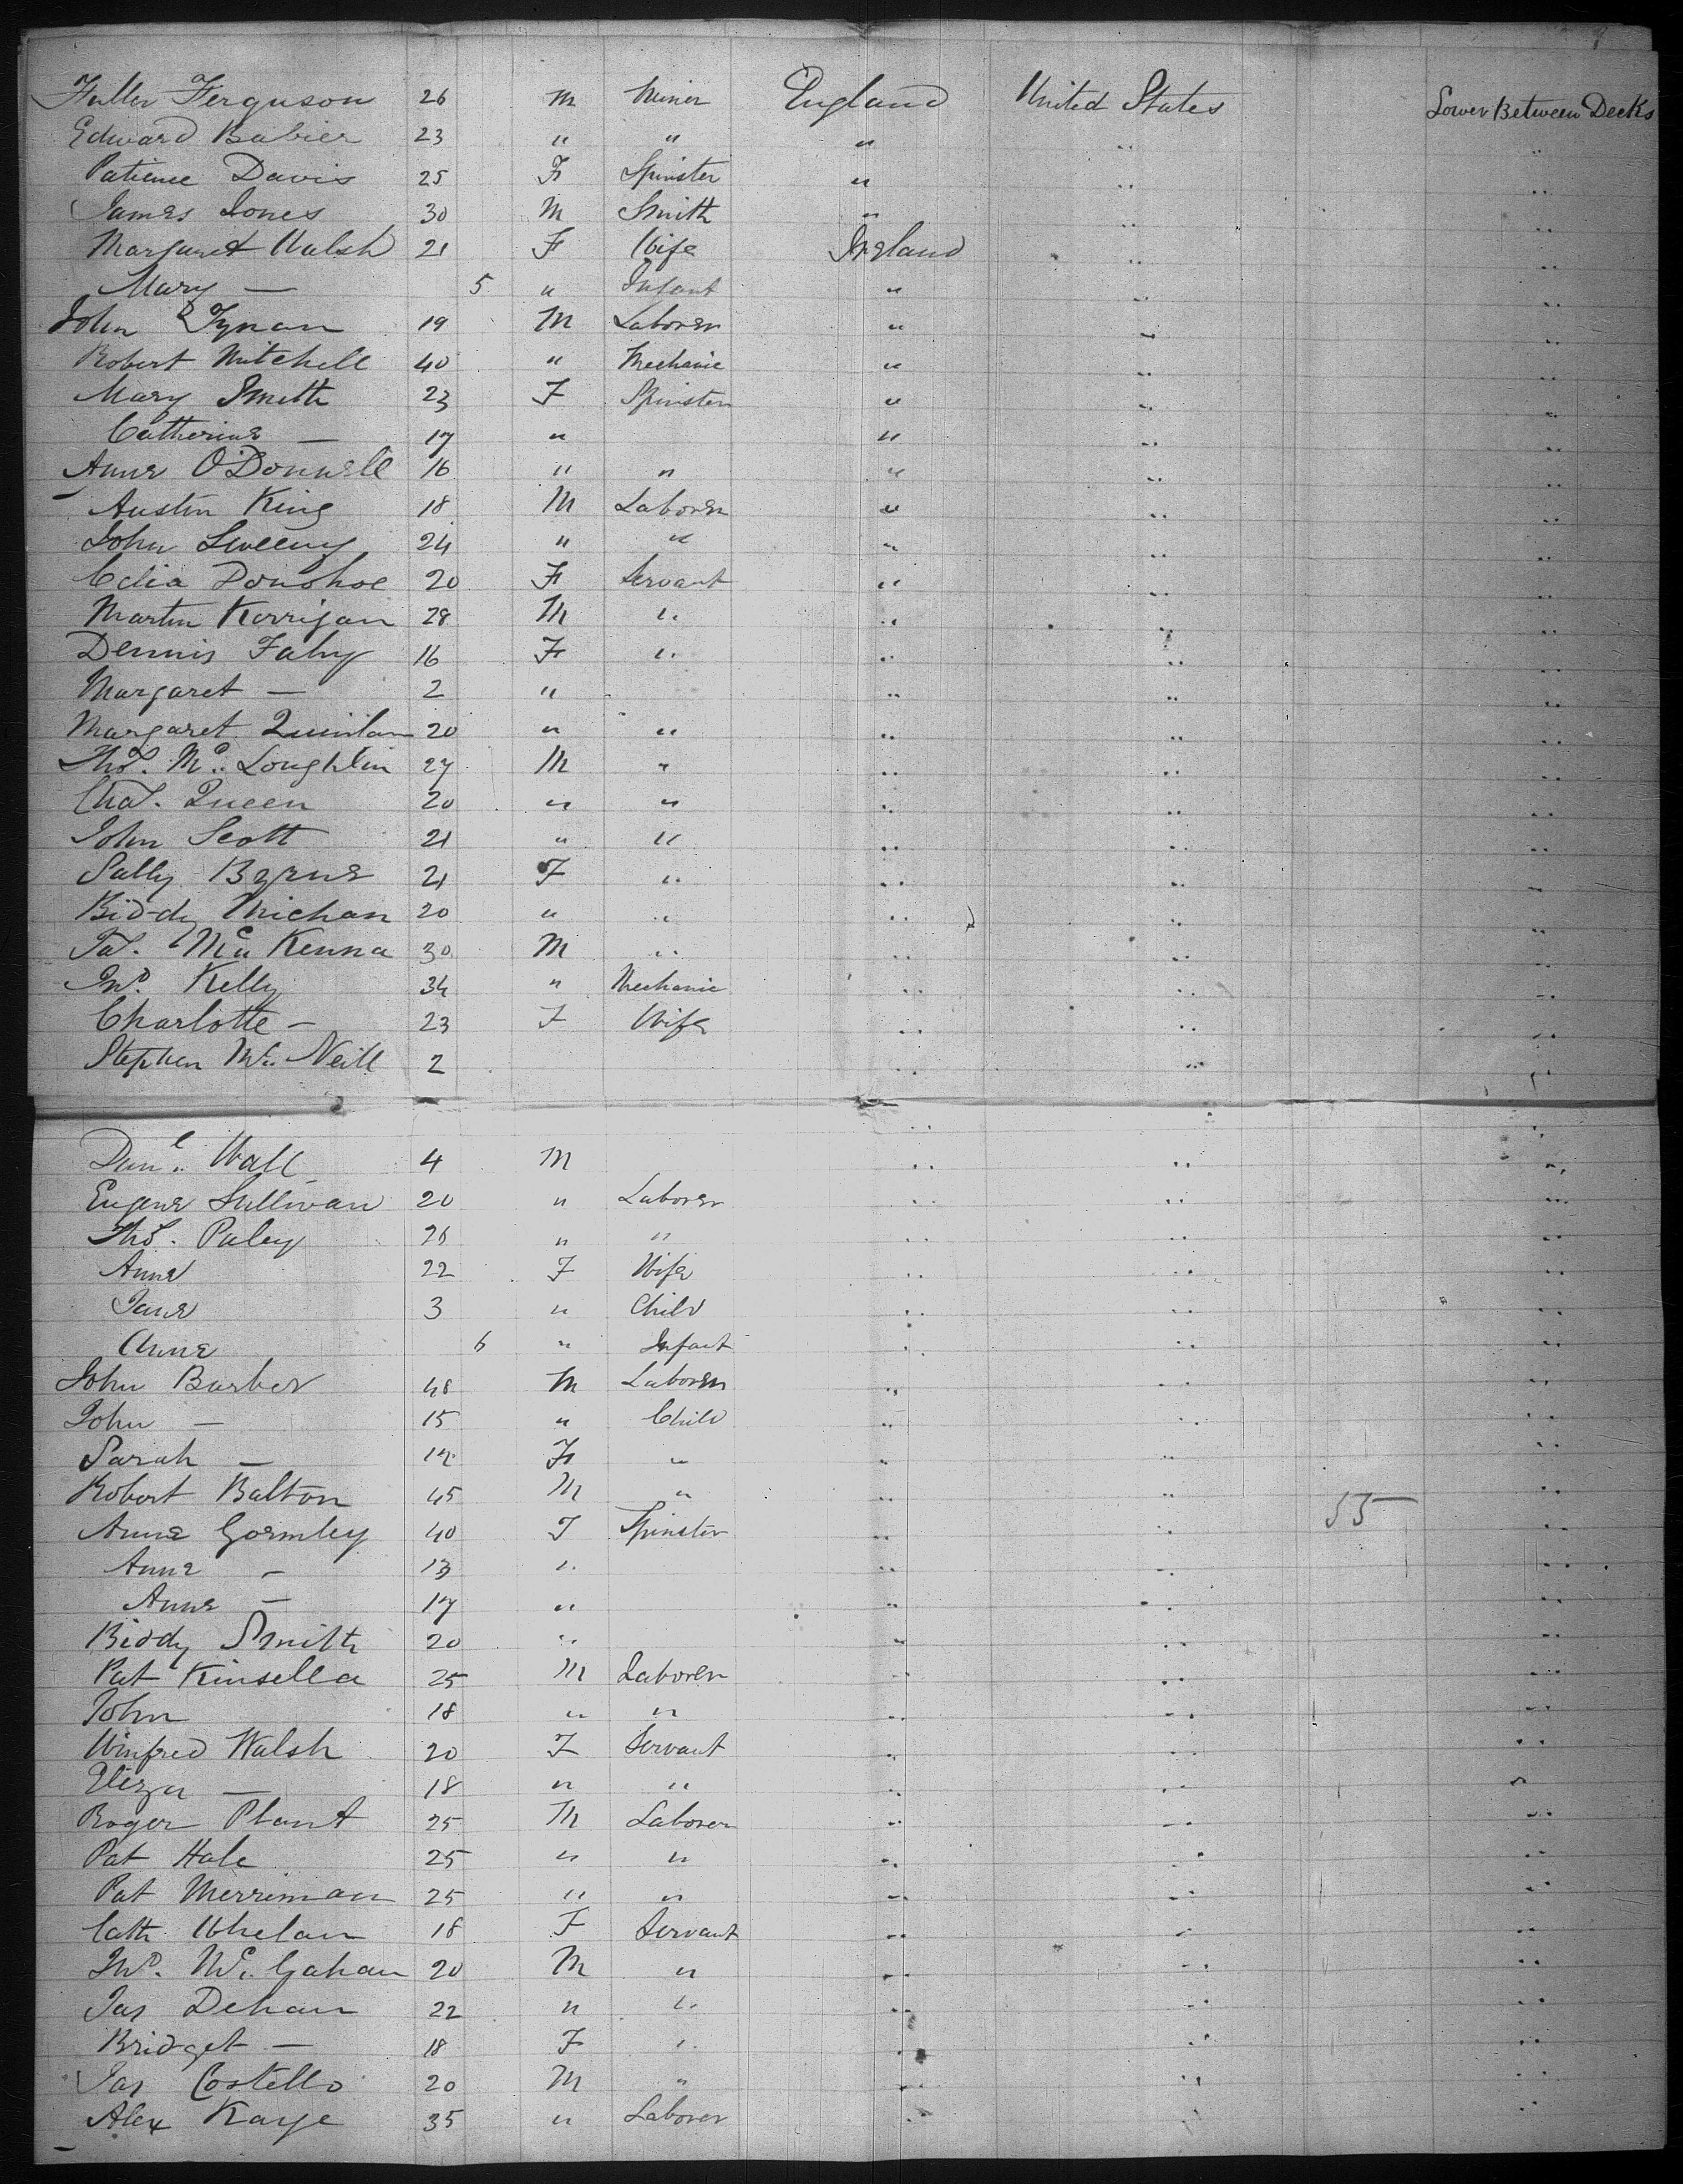 Fuller Ferguson 26 M Miner England United States Lower Between Decks
Edward Babier 23 " " " " "
Patience Davis 25 F Spinster " " "
James Jones 30 M Smith " " "
Margaret Walsh 21 F Wife Ireland " "
Mary — 5 " Infant " " "
John Tynan 19 M Laborer " " "
Robert Mitchell 40 " Mechanic " " "
Mary Smith 23 F Spinster " " "
Catherine — 17 " " " "
Anne O'Donnell 16 " " " " "
Austin King 18 M Laborer " " "
John Sweeny 24 " " " " "
Celia Donohoe 20 F Servant " " "
Martin Kerrigan 28 M " " " "
Dennis Fahy 16 F " " " "
Margaret — 2 " " " "
Margaret Quinlan 20 " " " " "
Thos. Mc. Loughlin 27 M " " " "
Chas. Queen 20 " " " " "
John Scott 21 " " " " "
Sally Byrne 21 F " " " "
Biddy Michan 20 " " " " "
Jas. Mc Kenna 30 M " " " "
Jno. Kelly 34 " Mechanic " " "
Charlotte — 23 F Wife " " "
Stephen Mc. Neill 2 " " "
Danl. Wall 4 M " " "
Eugene Sullivan 20 " Laborer " " "
Thos. Paley 26 " " " " "
Anne 22 F Wife " " "
Jane 3 " Child " " "
Anne 6 " Infant " " "
John Barber 48 M Laborer " " "
John — 15 " Child " " "
Sarah — 12 F " " " "
Robert Balton 45 M " " " 55 "
Anne Gormley 40 F Spinster " " "
Anne — 13 " " " "
Anne — 17 " " " "
Biddy Smith 20 " " " "
Pat Kinsella 25 M Laborer " " "
John 18 " " " " "
Winfred Walsh 20 F Servant " " "
Eliza — 18 " " " " "
Roger Plant 25 M Laborer " " "
Pat Hale 25 " " " " "
Pat Merriman 25 " " " " "
Cath Whelan 18 F Servant " " "
Jno. Mc. Gahan 20 M " " " "
Jas Dehan 22 " " " " "
Bridget — 18 F " " " "
Jas Costello 20 M " " " "
Alex Kaye 35 " Laborer " " "